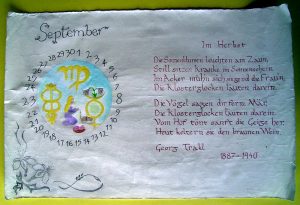 September
1 2 3 4 5 6 7 8 9 10 11 12 13 14 15 16 17 18 19 20 21 22 23 24 25 26 27 28 29 30
Im Herbst
Die Sonnenblumen leuchten am Zaun,
Still sitzen Kranke im Sonnenschein.
Im Acker mühn sich singend die Fraun,
Die Klosterglocken läuten darein.
Die Vögel sagen dir ferne Mär,
Die Klosterglocken läuten darein.
Vom Hof tönt sanft die Geige her.
Heut keltern sie den braunen Wein.
Georg Trakl
1887-1940